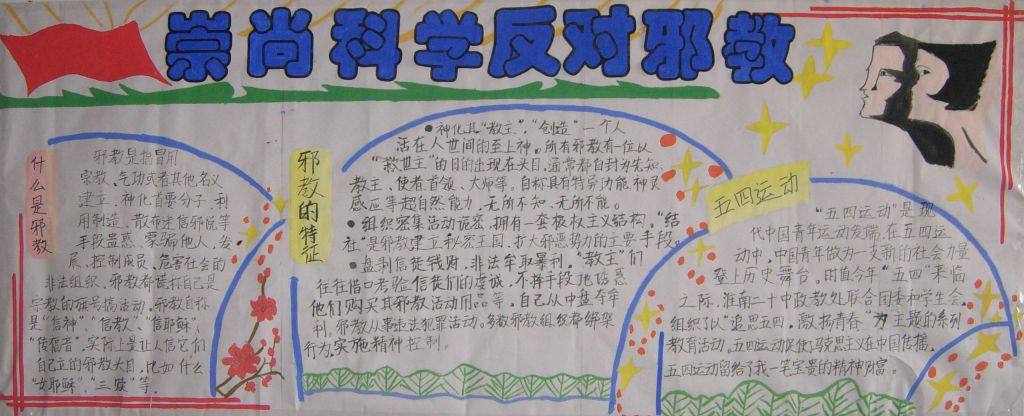 崇尚科学反对邪教
什么是邪教
邪教是指冒用
宗教、气功或者其他名义
建立、神化首要分子，利
用制造、散布迷信邪说等
手段蛊惑、蒙骗他人，发
展、控制成员，危害社会的
非法组织。邪教都是打自己是
宗教的旗号搞活动。邪教自称
是“信神”、“信教”、“信耶稣”、
“传福音”，实际上是让人信它们
自己立的邪教头目，比如什么
“女耶稣”、“三赎”等。
邪教的特征
●神化其“教主”，“创造”一个人
活在人世间的至上神。所有邪教有一位以
“救世主”的目的出现在头目，通常都自封为先知、
教主、使者首领、大师等。自称具有特异功能神灵
感应等超自然能力，无所不知、无所不能。
●组织密集活动诡密，拥有一套极权主义结构，“结
社”是邪教建立秘密王国、扩大邪恶势力的主要手段。
●盘剥信徒钱财，非法牟取暴利，“教主”们
往往借口考验信徒们的虔诚，不择手段地诱惑
他们购买其邪教活动用品等，自己从中盘夺牟
利，邪教从事违法犯罪活动。多数邪教组织存绑架
行为，实施精神控制。
五四运动
“五四运动”是现
代中国青年运动发端，在五四运
动中，中国青年做为一支新的社会力量
登上历史舞台。时值今年“五四”来临
之际，淮南二十中政教处联合团委和学生会
组织了以“追思五四，激扬青春”为主题的系列
教育活动。五四运动促使马克思主义在中国传播，
五四运动留给了我一笔宝贵的精神财富。